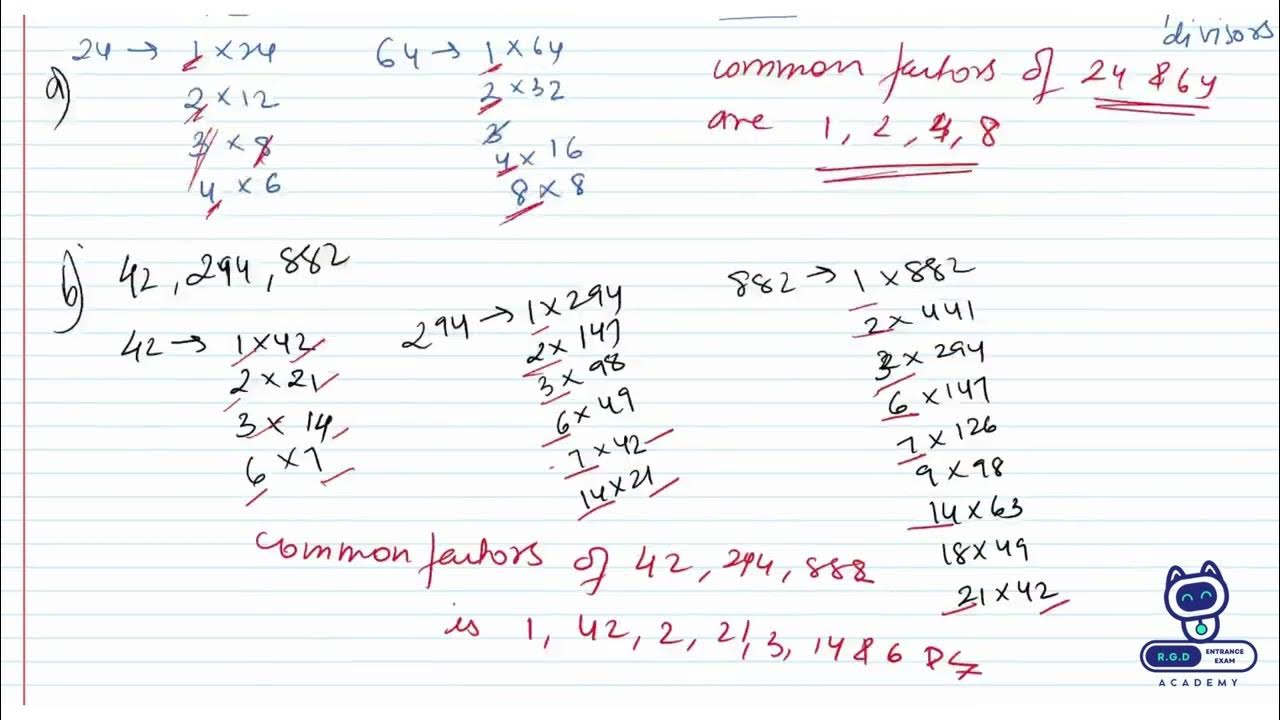 'divisors
a) 24 → 1 × 24
2 × 12
3 × 8
4 × 6
64 → 1 × 64
2 × 32
3
4 × 16
8 × 8
common factors of 24 & 64
are 1, 2, 4, 8
b) 42, 294, 882
42 → 1 × 42
2 × 21
3 × 14
6 × 7
294 → 1 × 294
2 × 147
3 × 98
6 × 49
7 × 42
14 × 21
882 → 1 × 882
2 × 441
3 × 294
6 × 147
7 × 126
9 × 98
14 × 63
18 × 49
21 × 42
common factors of 42, 294, 888
is 1, 42, 2, 21, 3, 14 & 6
R.G.D ENTRANCE EXAM
ACADEMY